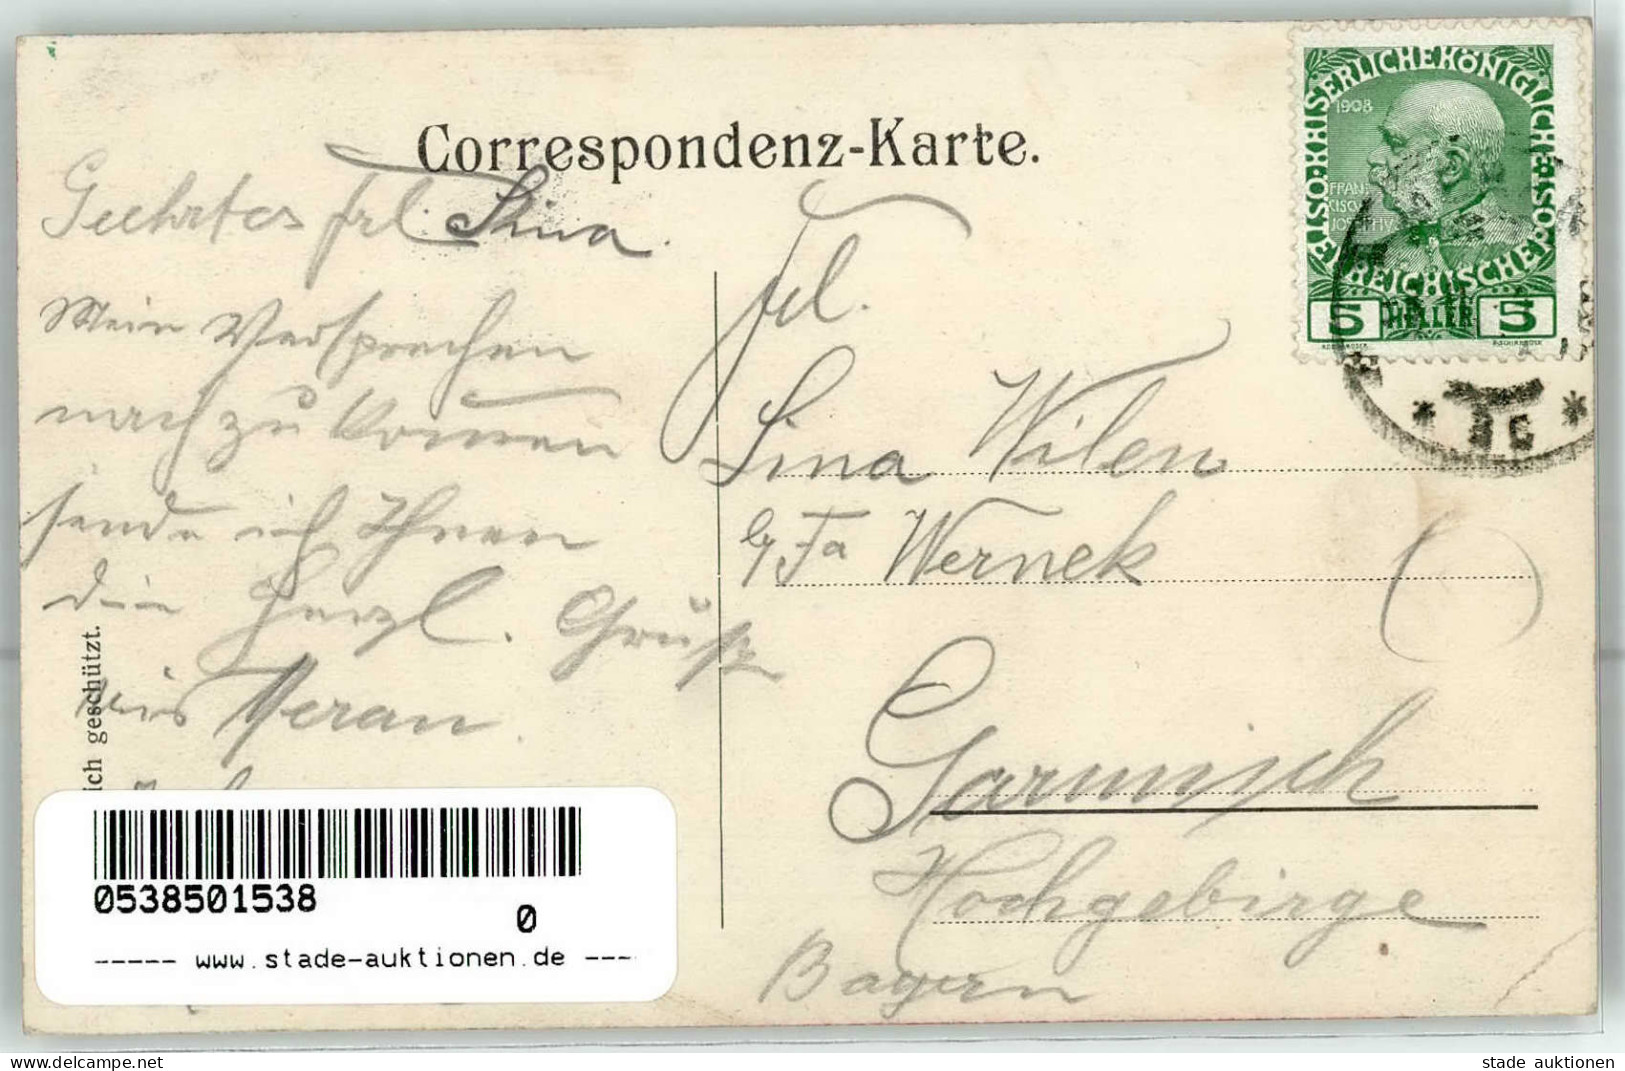 Correspondenz-Karte.
Geehrtes Frl. Sina.
Mein Versprechen
nachzukommen
sende ich Ihnen
die herzl. Grüße
aus Meran.
ich geschützt.
Frl.
Sina Wilen
b/ Fa Wernek
Garmisch
Hochgebirge
Bayern
KAISERLICHE KÖNIGLICHE
ÖSTERREICHISCHE POST
1908
FRAN
CISCVS
IOSEPHVS
5 HELLER 5
0538501538
0
----- www.stade-auktionen.de ---
delcampe.net
stade auktionen